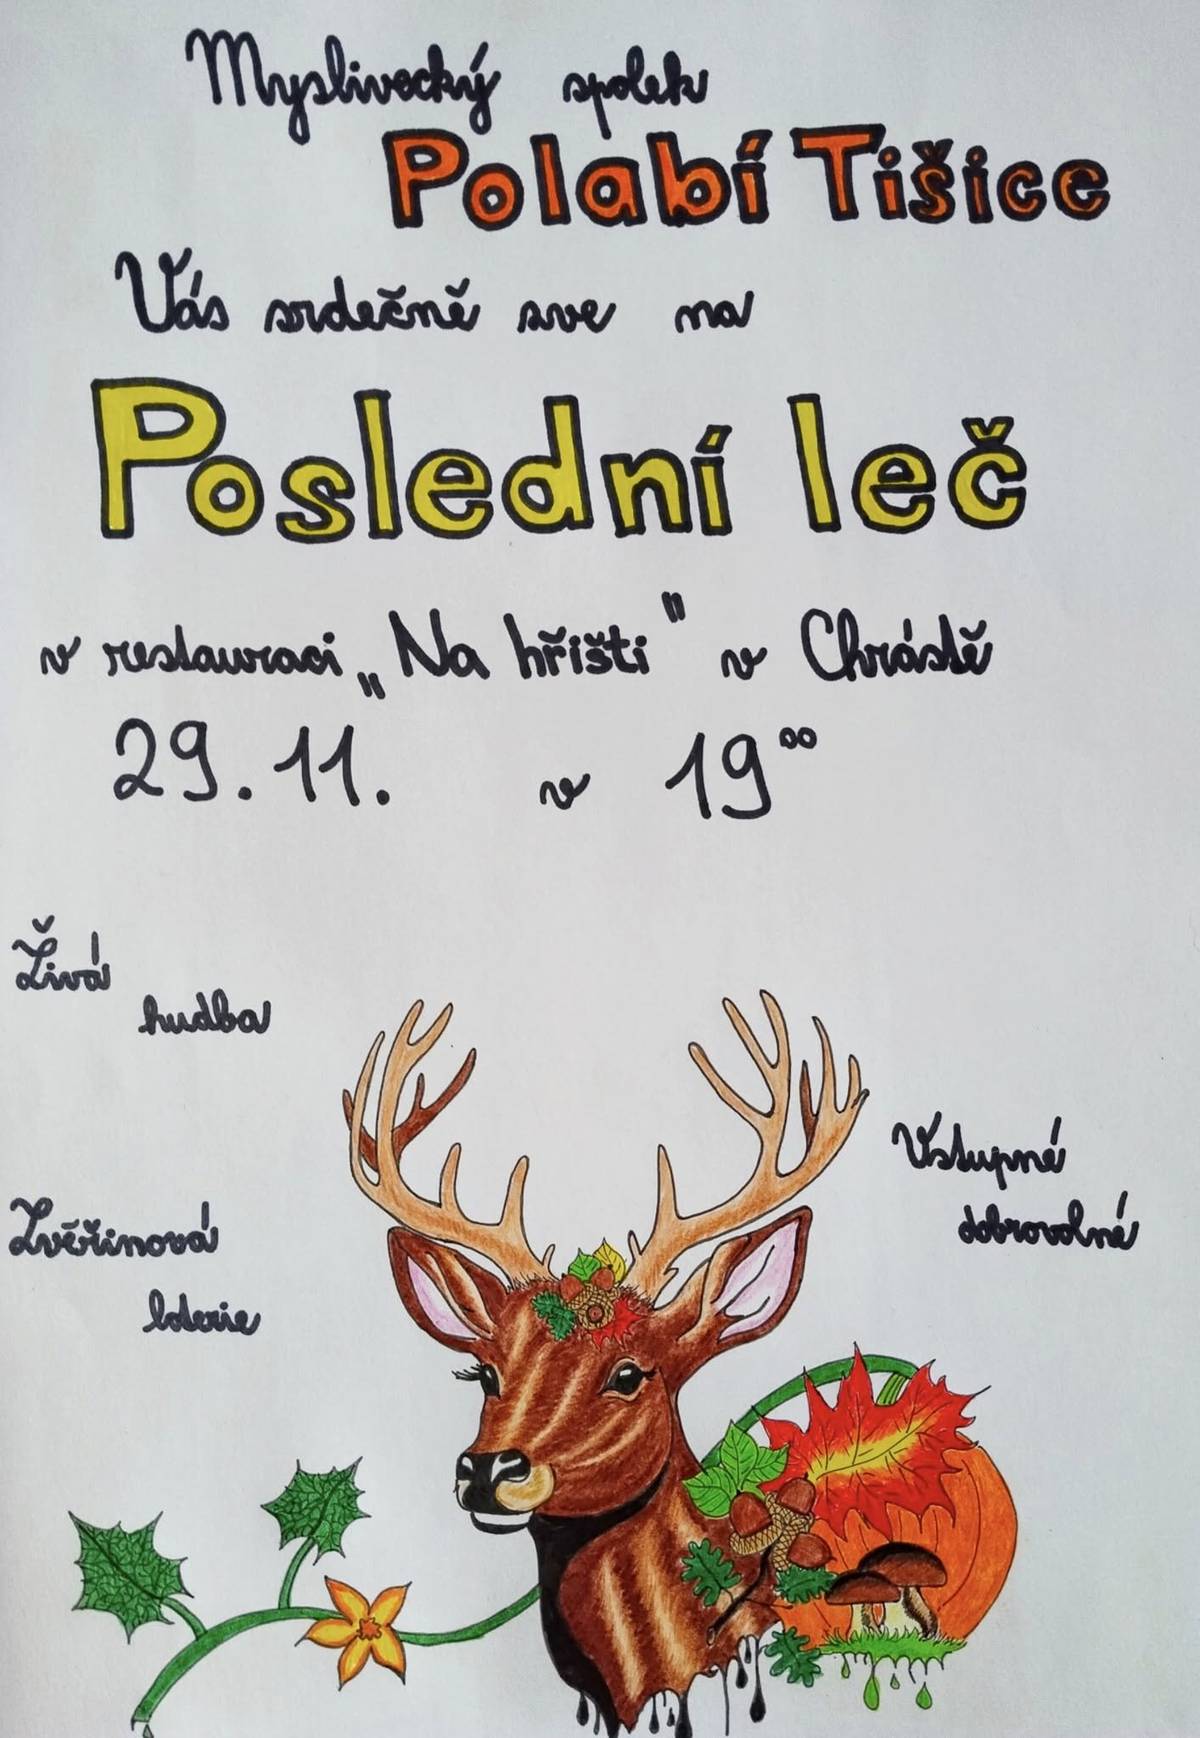 Myslivecký spolek
Polabí Tišice
Vás srdečně zve na
Poslední leč
v restauraci „Na hřišti" v Chrástě
29. 11. v 19⁰⁰
Živá
hudba
Vstupné
dobrovolné
Zvěřinová
loterie